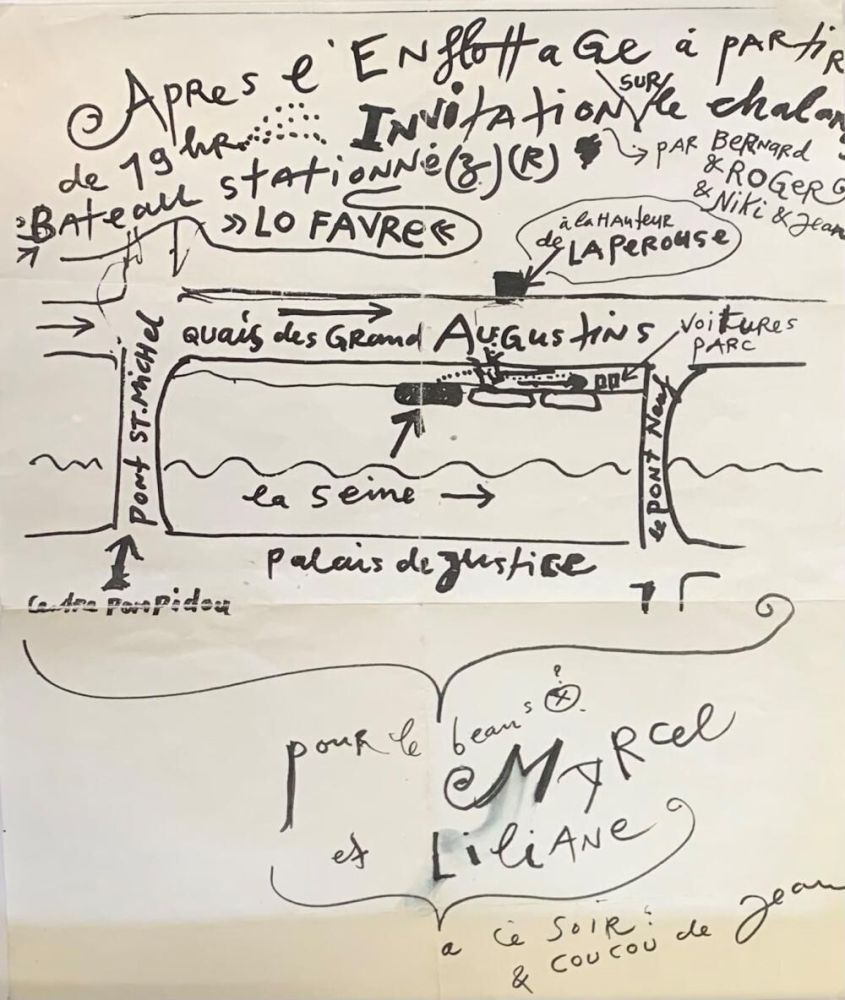 Apres l'Enflottage à partir
de 19 hr. Invitation sur le chalan
Bateau stationné(z)(R) par Bernard
& Roger
& Niki & Jean
»LO FAVRE«
à la Hauteur
de LAPEROUSE
QUAis des GRAnd AuGustins
Voitures
PARC
Pont ST.MicHel
le PONT Neuf
la Seine
Palais de Justice
Centre Pompidou
pour le beau s
?
X
MARcel
et LiliANe
a ce soir!
& coucou de Jean